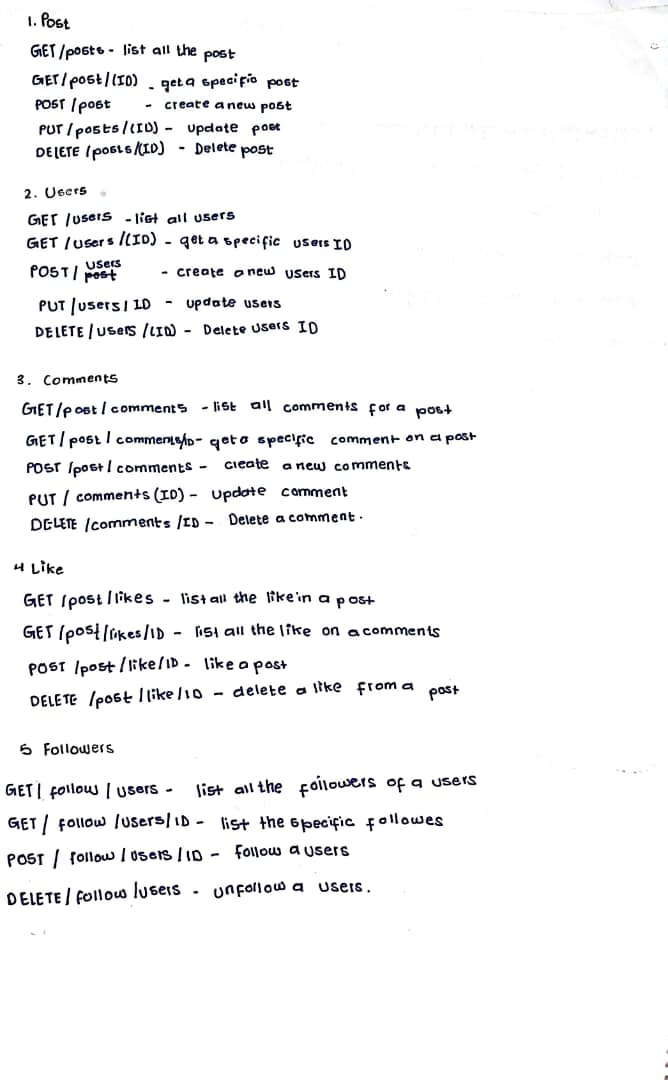 1. Post
GET /posts - list all the post
GET / post / (ID) - get a specific post
POST /post - create a new post
PUT / posts / (ID) - update post
DELETE / posts /(ID) - Delete post
2. Users
GET /users - list all users
GET / users /(ID) - get a specific users ID
POST / users post - create a new users ID
PUT /users / ID - update users
DELETE / users /(ID) - Delete users ID
3. Comments
GET/post / comments - list all comments for a post
GET / post / comments/ID - get a specific comment on a post
POST /post / comments - create a new comments
PUT / comments (ID) - Update comment
DELETE /comments /ID - Delete a comment.
4 Like
GET /post / likes - list all the like in a post
GET /post /likes /ID - list all the like on a comments
POST /post / like / ID - like a post
DELETE /post / like / ID - delete a like from a post
5 Followers
GET / follow / users - list all the followers of a users
GET / follow /users/ ID - list the specific followes
POST / follow / users / ID - follow a users
DELETE / follow /users - unfollow a users.